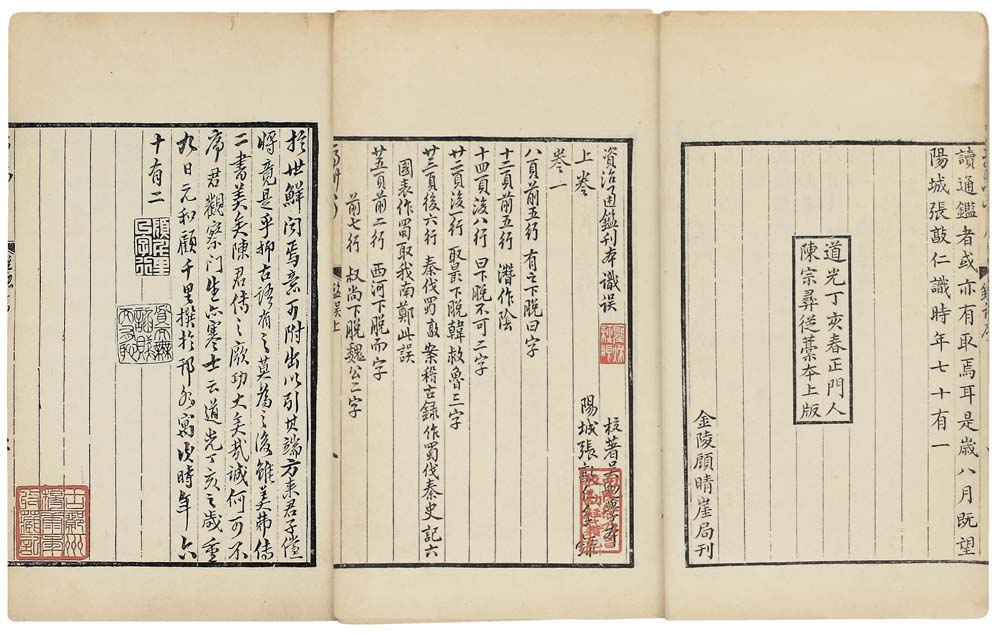 讀通鑑者或亦有取焉耳是歲八月既望
陽城張敦仁識時年七十有一
道光丁亥春正門人
陳宗彝從藁本上版
金陵顧晴崖局刊
資治通鑑刊本識誤
上卷
卷一
八頁前五行 有之下脫曰字
十二頁前五行 潛作陰
十四頁後八行 曰下脫不可二字
廿二頁後一行 取最下脫韓救魯三字
廿三頁後六行 秦伐蜀 敦案稽古錄作蜀伐秦史記六
國表作蜀取我南鄭此誤
廿五頁前二行 西河下脫而字
前七行 叔尚下脫魏公二字
陽城張
鑑誤上
於世鮮聞焉意可附出以引其端方來君子儻
將竟是乎抑古語有之莫為之後雖美弗傳
二書美矣陳君傳之厥功大矣哉誠何可不
序君觀察門生亦寒士云道光丁亥之歲重
九日元和顧千里撰於邗水寓次時年六
十有二